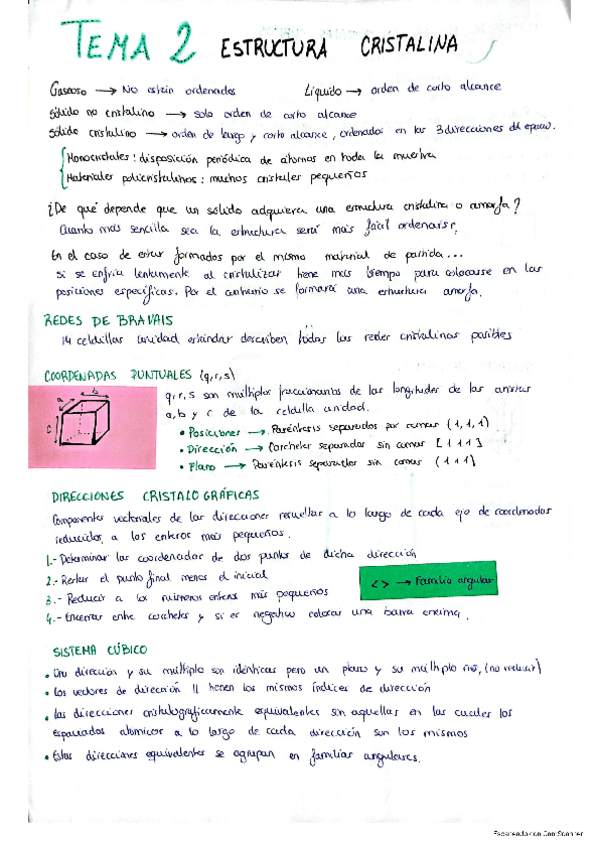 TEMA 2 ESTRUCTURA CRISTALINA
Gaseoso → No están ordenados Líquido → orden de corto alcance
Sólido no cristalino → solo orden de corto alcance
Sólido cristalino → orden de largo y corto alcance, ordenados en las 3 direcciones del espacio.
Monocristales: disposición periódica de átomos en toda la muestra
Materiales policristalinos: muchos cristales pequeños
¿De qué depende que un sólido adquiera una estructura cristalina o amorfa?
Cuanto más sencilla sea la estructura será más fácil ordenarse.
En el caso de estar formados por el mismo material de partida...
si se enfría lentamente al cristalizar tiene más tiempo para colocarse en las
posiciones específicas. Por el contrario se formará una estructura amorfa.
REDES DE BRAVAIS
14 celdillas unidad estándar describen todas las redes cristalinas posibles
COORDENADAS PUNTUALES (q,r,s)
a b
c
q,r,s son múltiplos fraccionarios de las longitudes de las aristas
a, b y c de la celdilla unidad.
• Posiciones → Paréntesis separados por comas (1,1,1)
• Dirección → Corchetes separados sin comas [1 1 1]
• Plano → Paréntesis separados sin comas (1 1 1)
DIRECCIONES CRISTALOGRÁFICAS
Componentes vectoriales de las direcciones resueltas a lo largo de cada eje de coordenadas
reducidos a los enteros más pequeños.
1.- Determinar las coordenadas de dos puntos de dicha dirección
2.- Restar el punto final menos el inicial
< > → Familia angular
3.- Reducir a los números enteros más pequeños
4.- Encerrar entre corchetes y si es negativo colocar una barra encima.
SISTEMA CÚBICO
• Una dirección y su múltiplo son idénticas pero un plano y su múltiplo no, (no reducir)
• Los vectores de dirección || tienen los mismos índices de dirección
• Las direcciones cristalograficamente equivalentes son aquellas en las cuales los
espaciados atómicos a lo largo de cada dirección son los mismos
• Estas direcciones equivalentes se agrupan en familias angulares.
Escaneado con CamScanner